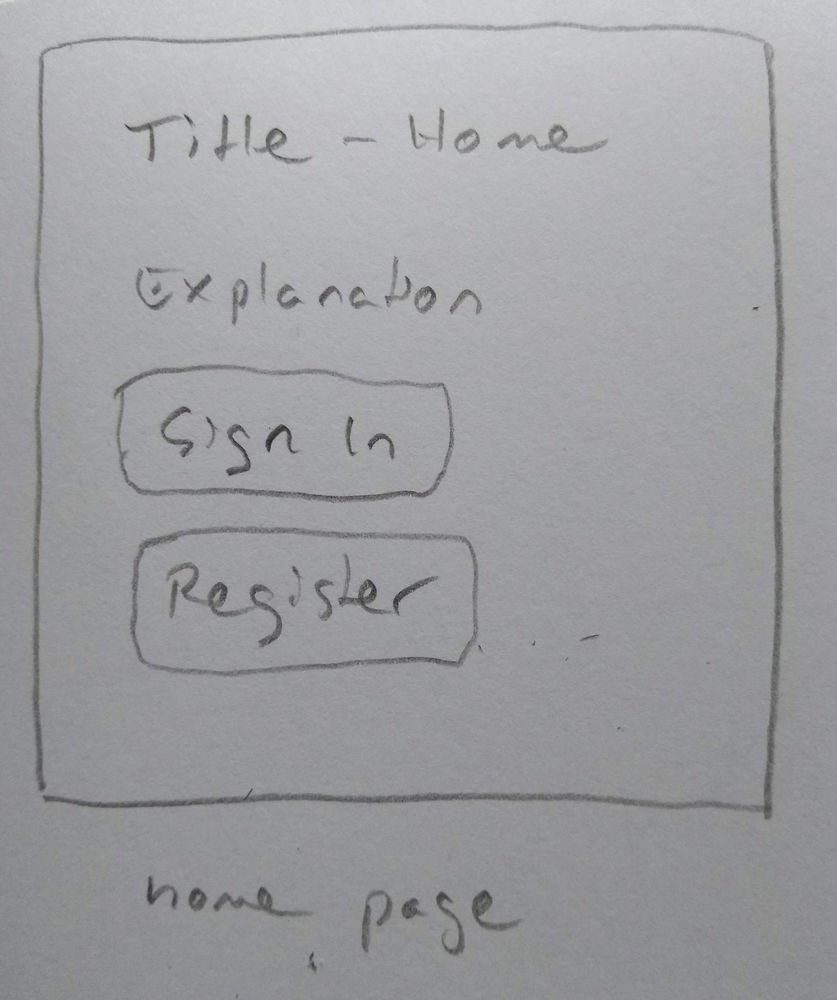 Title - Home
Explanation
Sign In
Register
home page